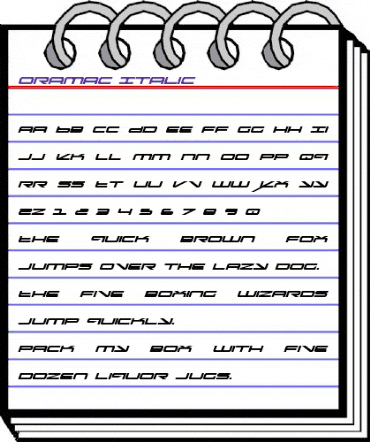 ORAMAC ITALIC
AA BB CC DD EE FF GG HH II
JJ KK LL MM NN OO PP QQ
RR SS TT UU VV WW XX YY
ZZ 1 2 3 4 5 6 7 8 9 0
THE QUICK BROWN FOX
JUMPS OVER THE LAZY DOG.
THE FIVE BOXING WIZARDS
JUMP QUICKLY.
PACK MY BOX WITH FIVE
DOZEN LIQUOR JUGS.